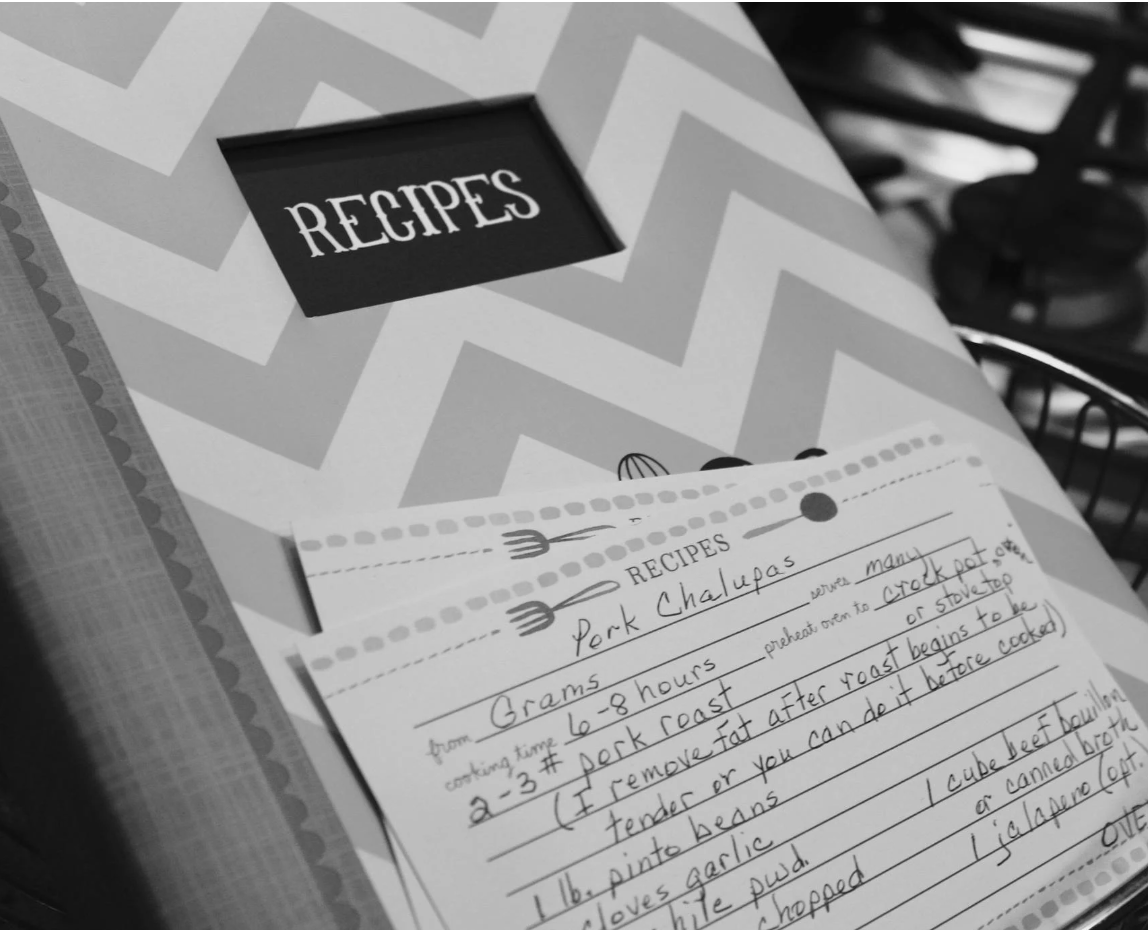 RECIPES
RECIPES
Pork Chalupas
from Grams serves many
cooking time 6-8 hours preheat oven to crock pot, oven
or stovetop
2-3 # pork roast
(I remove fat after roast begins to be
tender or you can do it before cooked)
1 lb. pinto beans
1 cube beef bouillon
cloves garlic or canned broth
pwd. 1 jalapeno (opt.
chopped OVE